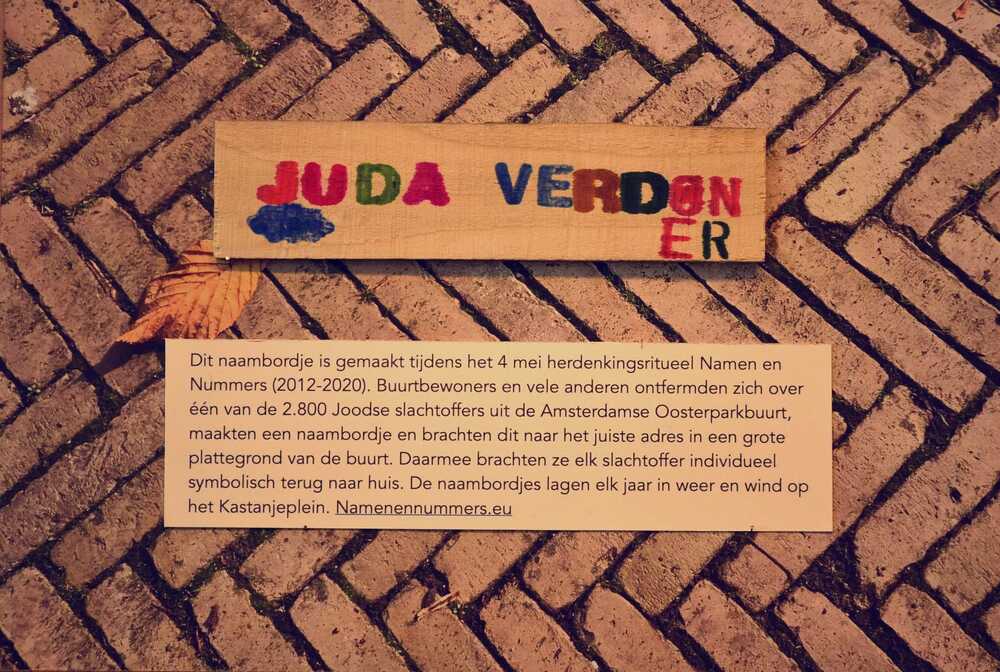 JUDA VERDON
ER
Dit naambordje is gemaakt tijdens het 4 mei herdenkingsritueel Namen en
Nummers (2012-2020). Buurtbewoners en vele anderen ontfermden zich over
één van de 2.800 Joodse slachtoffers uit de Amsterdamse Oosterparkbuurt,
maakten een naambordje en brachten dit naar het juiste adres in een grote
plattegrond van de buurt. Daarmee brachten ze elk slachtoffer individueel
symbolisch terug naar huis. De naambordjes lagen elk jaar in weer en wind op
het Kastanjeplein. Namenennummers.eu